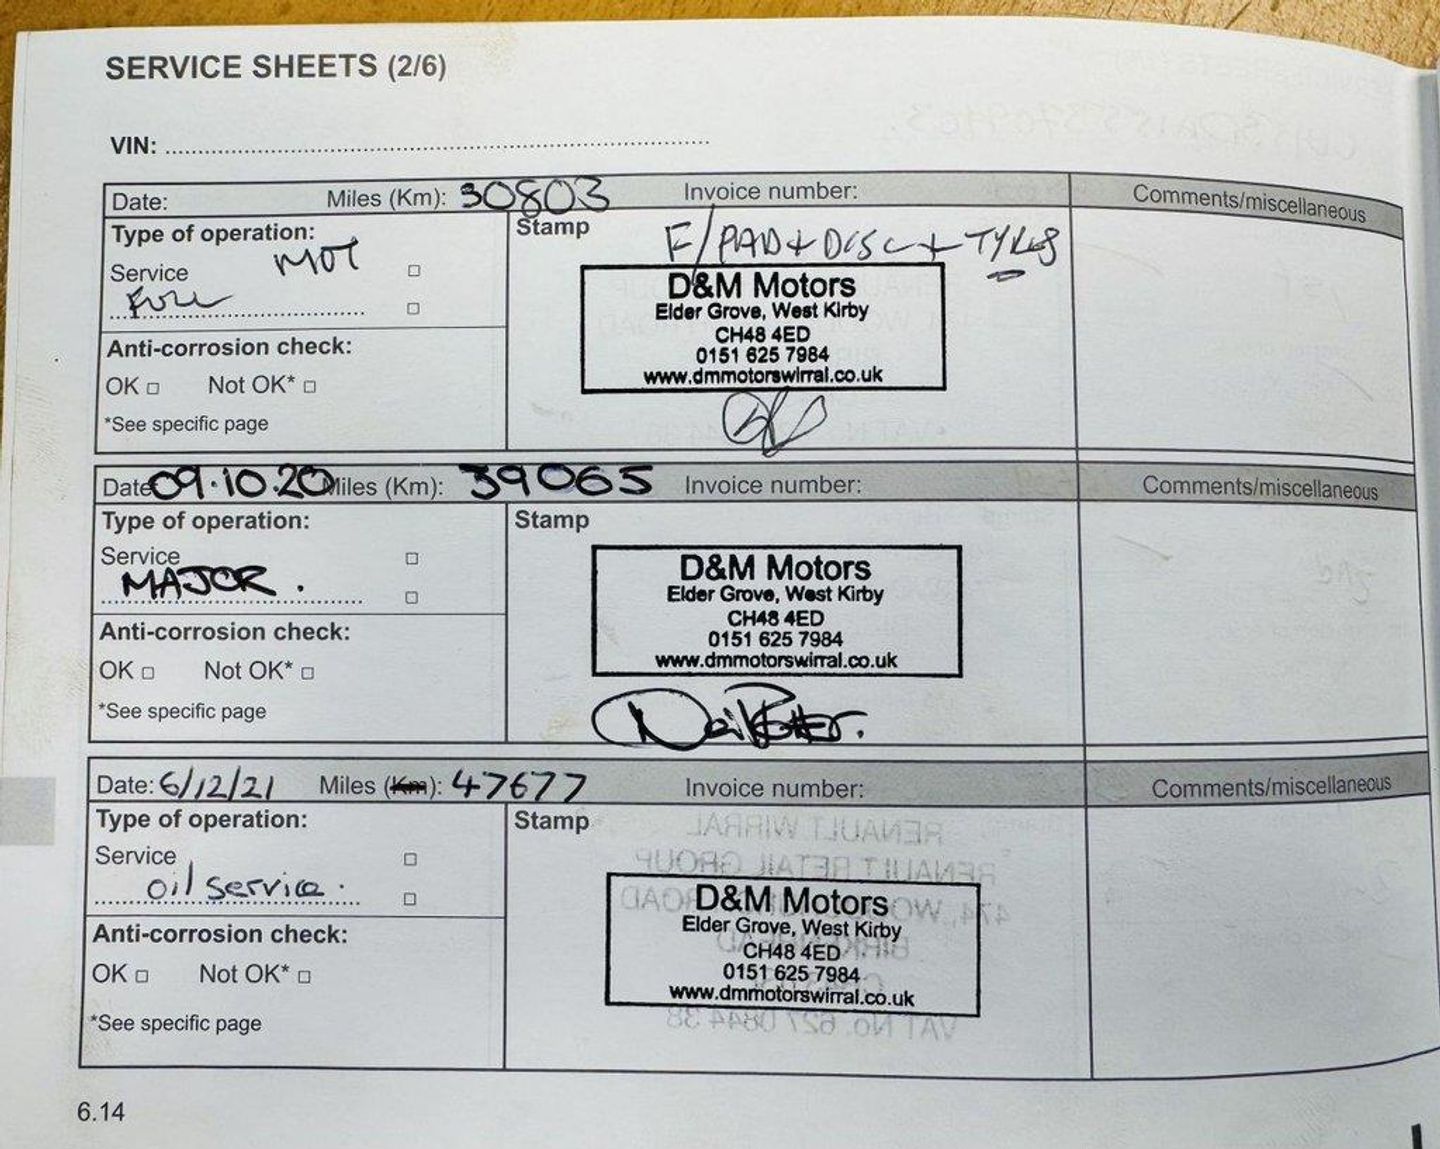 SERVICE SHEETS (2/6)
VIN:
Date: Miles (Km): 30803 Invoice number: Comments/miscellaneous
Type of operation: MOT
Stamp F/PAD + DISC + TYRES
Service
FULL
D&M Motors
Elder Grove, West Kirby
CH48 4ED
0151 625 7984
www.dmmotorswirral.co.uk
Anti-corrosion check:
OK Not OK*
*See specific page
Date: 09.10.20 Miles (Km): 39065 Invoice number: Comments/miscellaneous
Type of operation:
Stamp
Service
MAJOR.
D&M Motors
Elder Grove, West Kirby
CH48 4ED
0151 625 7984
www.dmmotorswirral.co.uk
Anti-corrosion check:
OK Not OK*
*See specific page
Date: 6/12/21 Miles (Km): 47677 Invoice number: Comments/miscellaneous
Type of operation:
Stamp
Service
oil service.
D&M Motors
Elder Grove, West Kirby
CH48 4ED
0151 625 7984
www.dmmotorswirral.co.uk
Anti-corrosion check:
OK Not OK*
*See specific page
6.14